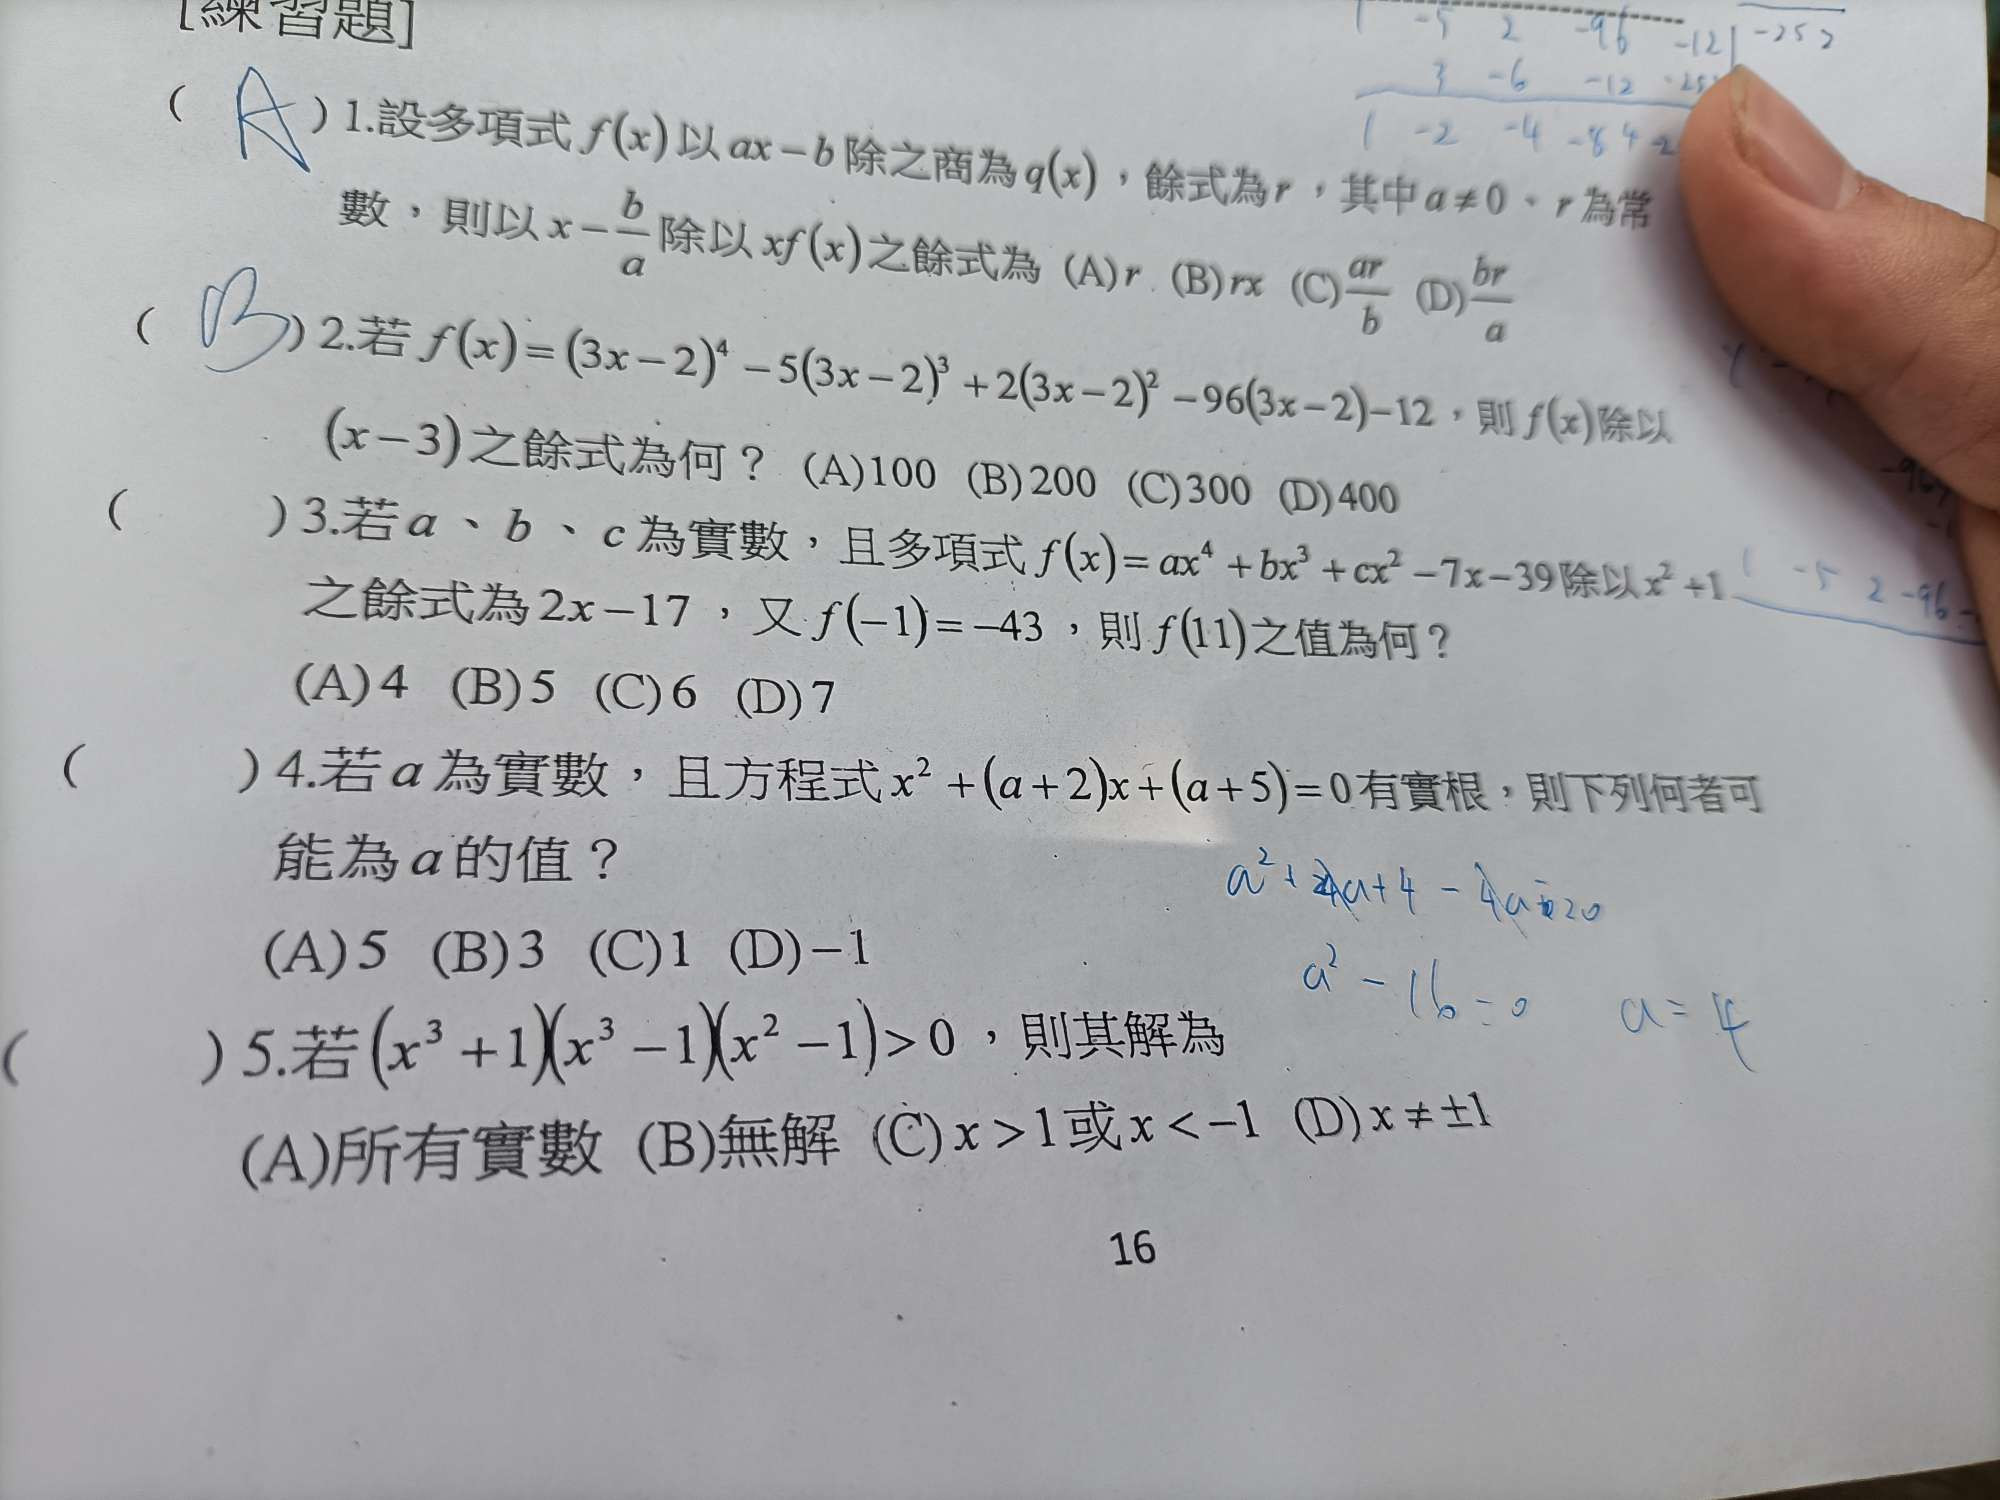 [練習題]
1 -5 2 -96 -12 | -252
3 -6 -12
1 -2 -4 -84
( A ) 1.設多項式 f(x) 以 ax-b 除之商為 q(x)，餘式為 r，其中 a≠0、r 為常
數，則以 x-b/a 除以 xf(x) 之餘式為 (A) r (B) rx (C) ar/b (D) br/a
( B ) 2.若 f(x)=(3x-2)⁴-5(3x-2)³+2(3x-2)²-96(3x-2)-12，則 f(x)除以
(x-3)之餘式為何？ (A)100 (B)200 (C)300 (D)400
( ) 3.若 a、b、c 為實數，且多項式 f(x)=ax⁴+bx³+cx²-7x-39 除以 x²+1
1 -5 2 -96
之餘式為 2x-17，又 f(-1)=-43，則 f(11)之值為何？
(A)4 (B)5 (C)6 (D)7
( ) 4.若 a 為實數，且方程式 x²+(a+2)x+(a+5)=0 有實根，則下列何者可
能為 a 的值？
a²+4a+4-4a-20
(A)5 (B)3 (C)1 (D)-1
a²-16=0 a=4
( ) 5.若 (x³+1)(x³-1)(x²-1)>0，則其解為
(A)所有實數 (B)無解 (C) x>1 或 x<-1 (D) x≠±1
16